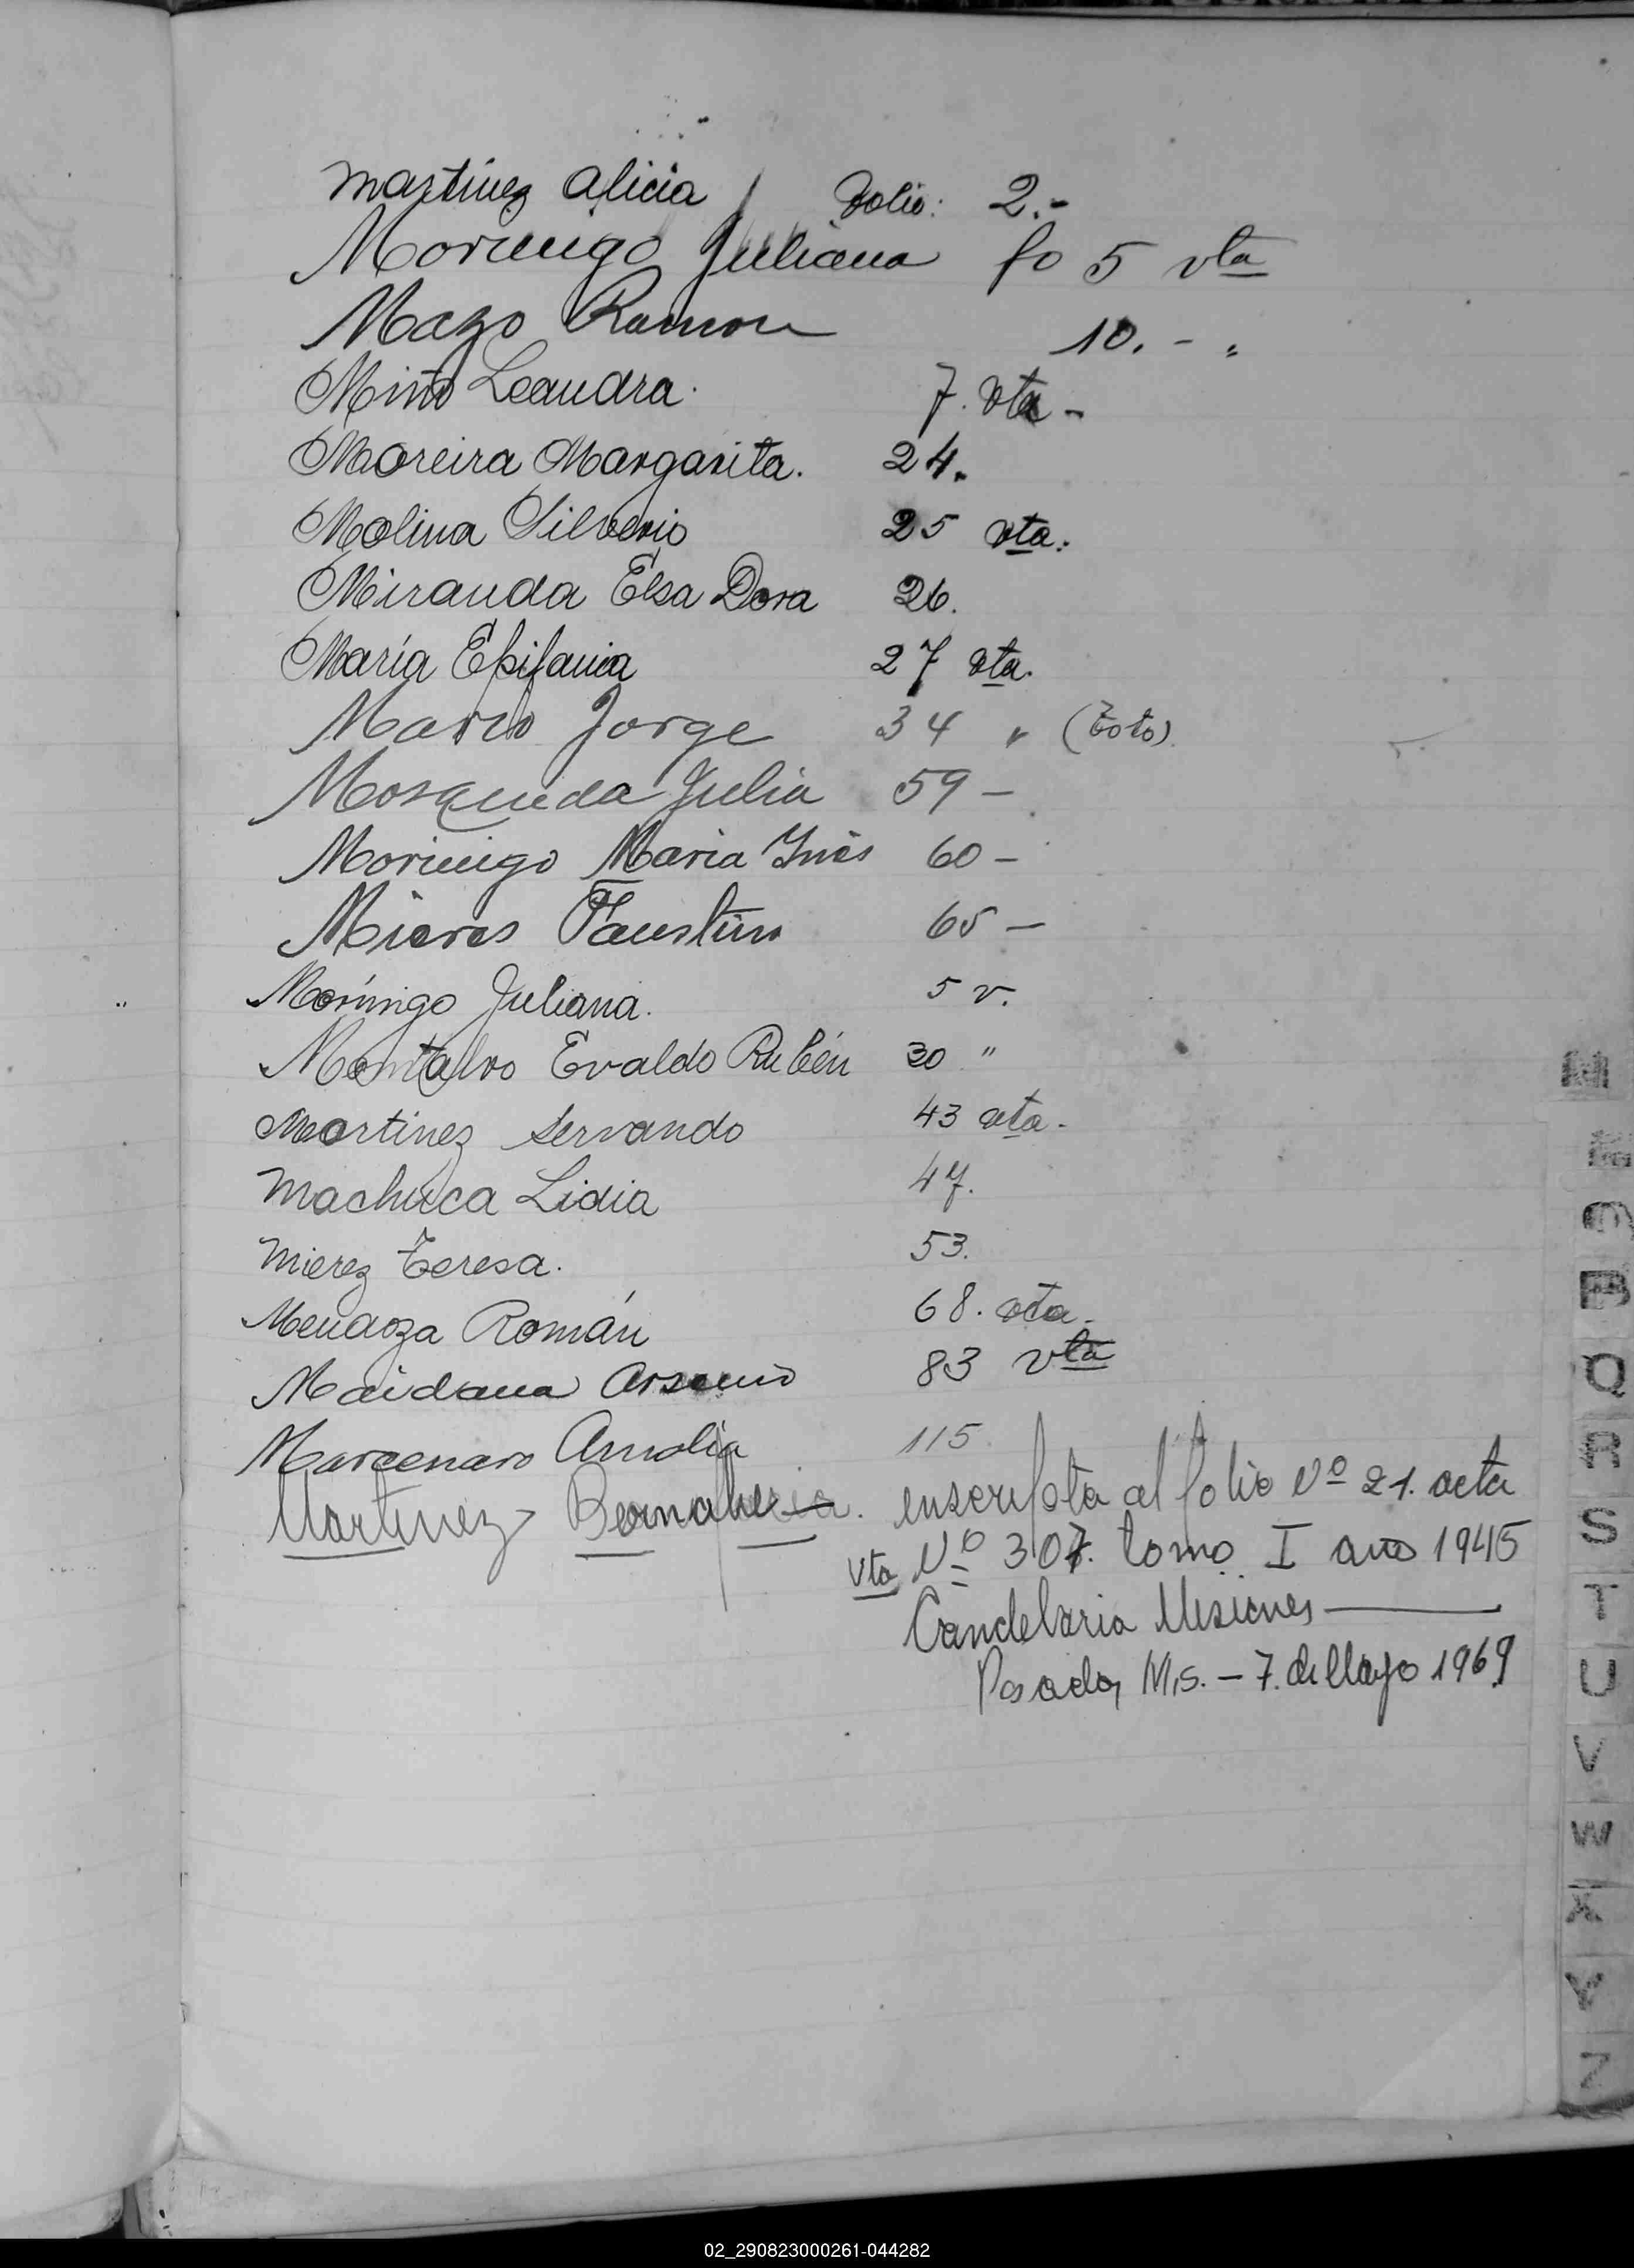 Martínez Alicia / Folio: 2.-
Morinigo Juliana fo 5 vta
Mazo Ramon 10.- "
Miño Leandra. 7. vta -
Moreira Margarita. 24.
Molina Silverio 25 vta.
Miranda Elsa Dora 26.
María Epifania 27 vta.
Mario Jorge 34 " (Foto)
Mosqueda Julia 59 -
Morinigo Maria Inés 60 -
Mieres Faustino 65 -
Morínigo Juliana. 5 v.
Montalvo Evaldo Rubén 30 "
Martinez Servando 43 vta.
Machuca Lidia 47.
Mierez Teresa. 53.
Mendoza Román 68. vta.
Maidana Arsenio 83 vta
Marcenaro Amalia 115
Martinez Bernabe inscripta al folio Nº 21. acta
vta Nº 307. tomo I año 1945
Candelaria Misiones
Posadas, Mis. - 7. de Mayo 1969
M
M
O
P
Q
R
S
T
U
V
W
X
Y
Z
02_290823000261-044282